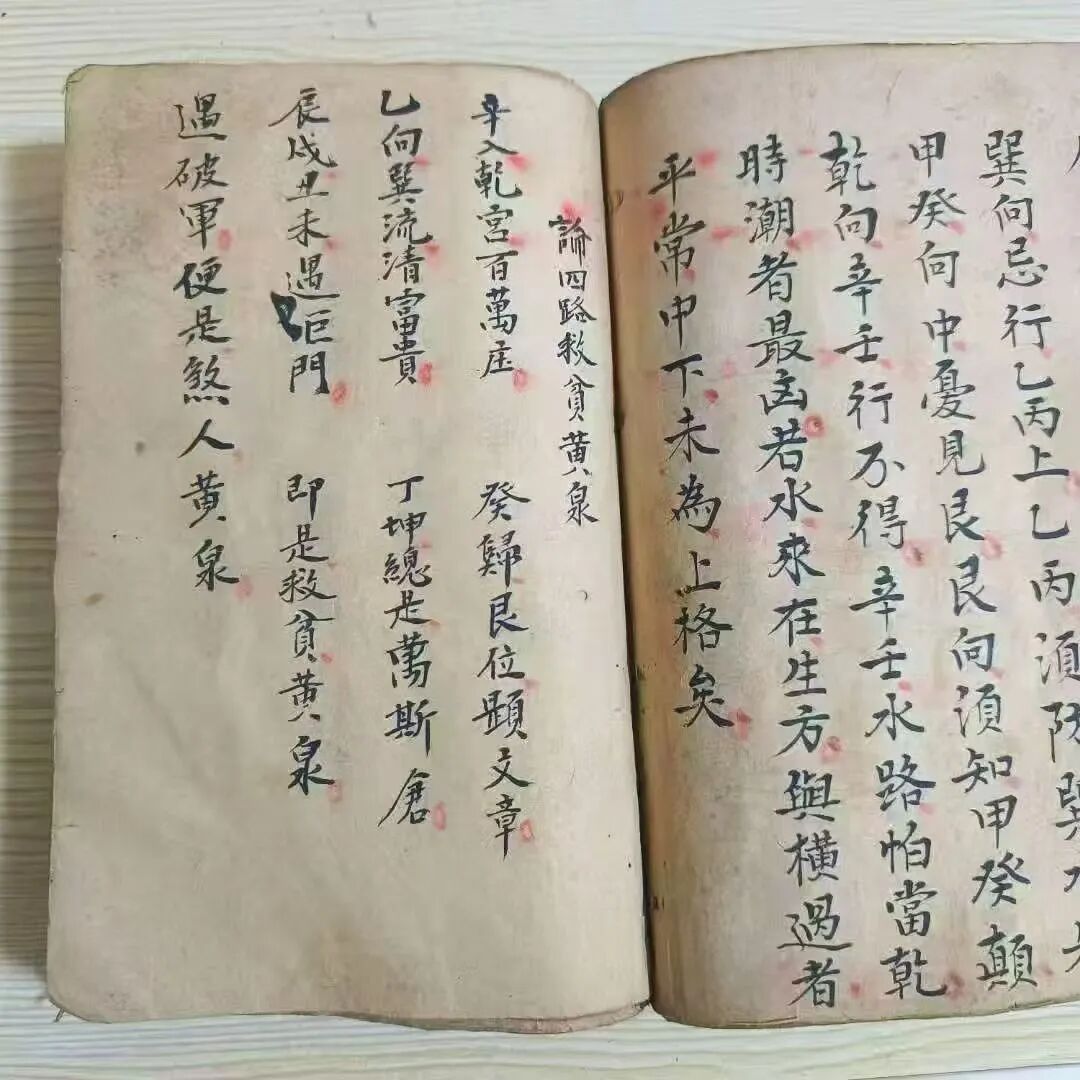 巽向忌行乙丙上乙丙須防巽
甲癸向中憂見艮艮向須知甲癸顛
乾向辛壬行不得辛壬水路怕當乾
時潮者最凶若水來在生方與橫過者
平常中下未為上格矣
論四路救貧黃泉
辛入乾宮百萬庄 癸歸艮位顕文章
乙向巽流清富貴 丁坤總是萬斯倉
辰戌丑未遇巨門 即是救貧黃泉
遇破軍便是煞人黃泉